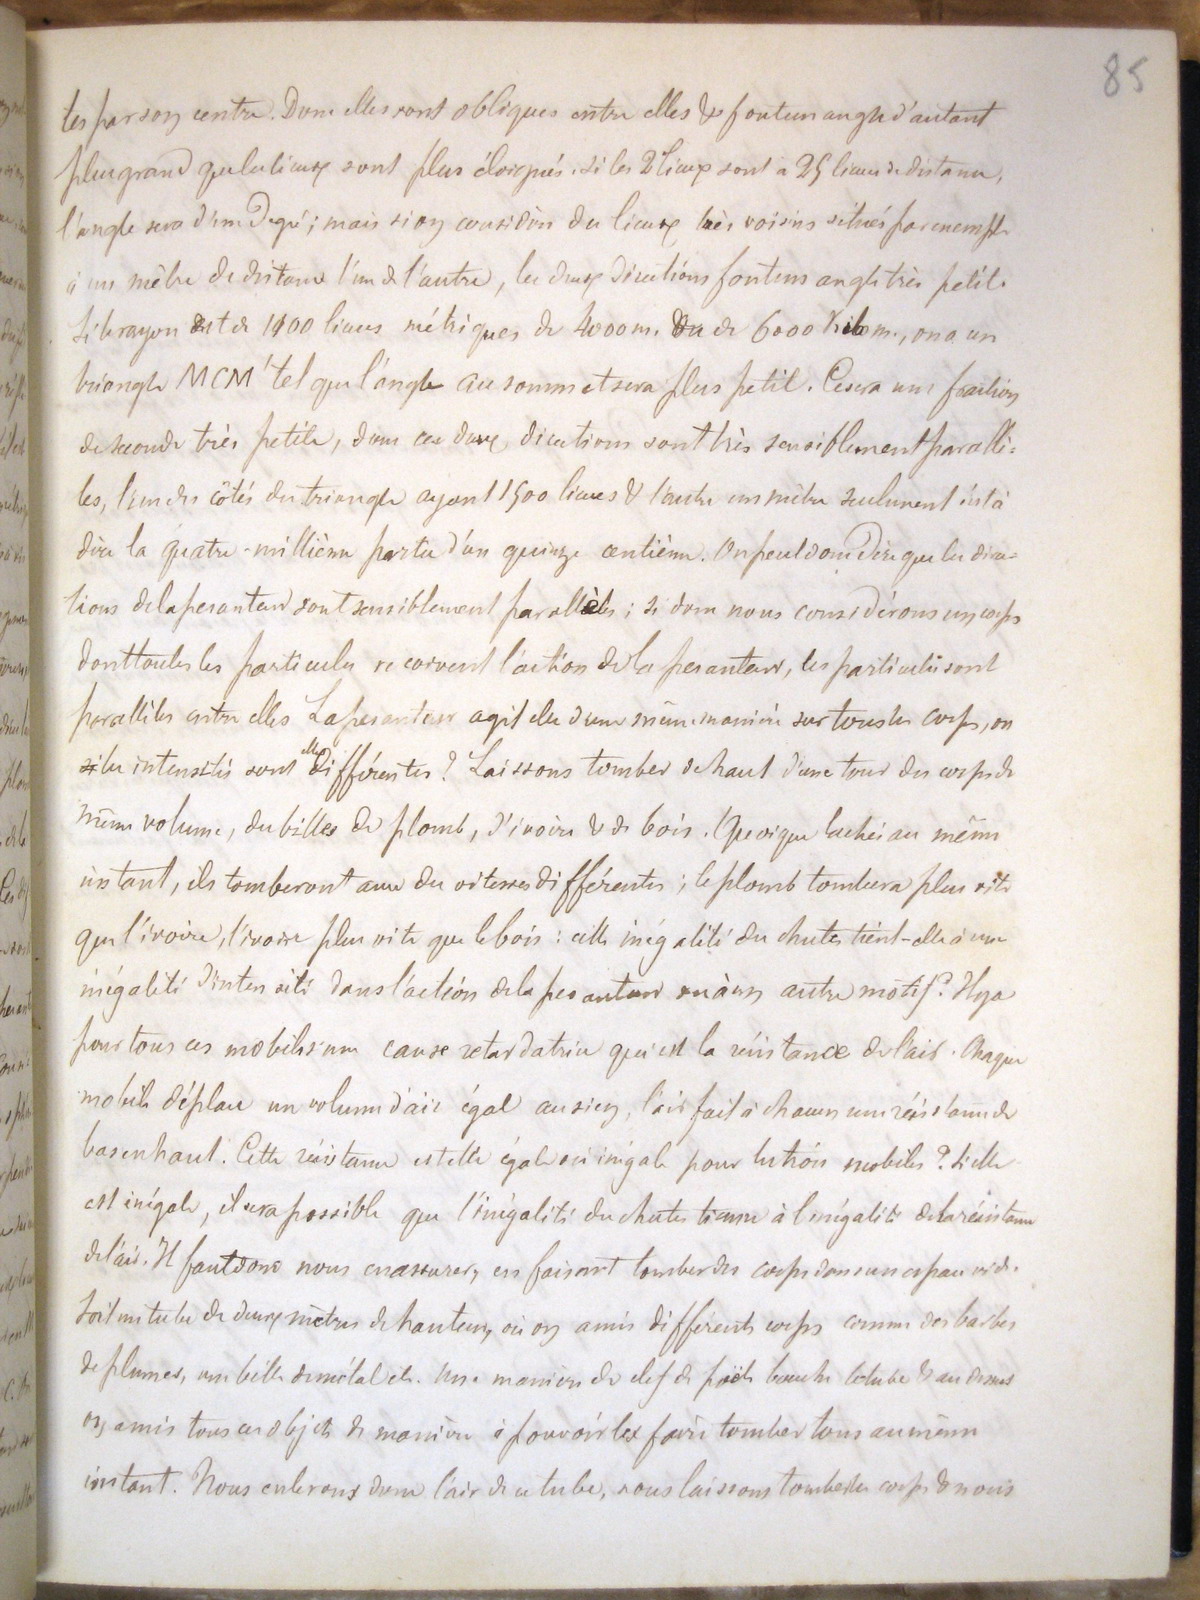 85
tes par son centre. Donc elles sont obliques entre elles & font un angle d'autant
plus grand que les lieux sont plus éloignés. si les 2 lieux sont à 25 lieues de distance,
l'angle sera d'un degré ; mais si on considère des lieux très voisins situés par exemple
à un mètre de distance l'un de l'autre, les deux directions font un angle très petit.
Si le rayon est de 1500 lieues métriques de 4000 m. ou de 6000 Kilom., on a un
triangle MCM' tel que l'angle au sommet sera plus petit. Ce sera une fraction
de seconde très petite, donc ces deux directions sont très sensiblement parallè-
les, l'un des côtés du triangle ayant 1500 lieues & l'autre un mètre seulement c'est à
dire la quatre-millième partie d'un quinze centième. On peut donc dire que les direc-
tions de la pesanteur sont sensiblement parallèles ; si donc nous considérons un corps
dont toutes les particules reçoivent l'action de la pesanteur, les particules sont
parallèles entre elles La pesanteur agit elle d'une même manière sur tous les corps, ou
si les intensités sont elles différentes ? Laissons tomber de haut d'une tour des corps de
même volume, des billes de plomb, d'ivoire & de bois. Quoique lachés au même
instant, ils tomberont avec des vitesses différentes ; le plomb tombera plus vite
que l'ivoire, l'ivoire plus vite que le bois : cette inégalité des chutes tient-elle à une
inégalité d'intensité dans l'action de la pesanteur ou à un autre motif ? Il y a
pour tous ces mobiles une cause retardatrice qui est la résistance de l'air. Chaque
mobile déplace un volume d'air égal au sien, l'air fait à chacun une résistance de
bas en haut. Cette résistance est elle égale ou inégale pour les trois mobiles ? Si elle
est inégale, il sera possible que l'inégalité des chutes tienne à l'inégalité de la résistance
de l'air. Il faut donc nous en assurer, en faisant tomber des corps dans un espace vide.
Soit un tube de deux mètres de hauteur, où on a mis différents corps comme des barbes
de plumes, une bille de métal etc. Une manière de clef de poële bouche le tube & au dessus
on a mis tous ces objets de manière à pouvoir les faire tomber tous au même
instant. Nous enlevons donc l'air de ce tube, nous laissons tomber les corps & nous